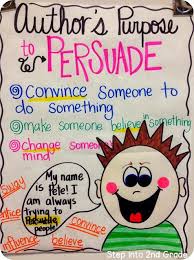 Author's Purpose
to PERSUADE
Convince Someone to
do something
make someone believe in something
Change Someone's
mind
My name
is Pete! I
am always
trying to
Persuade
people!
sway
entice
convince
influence
believe
Step into 2nd Grade